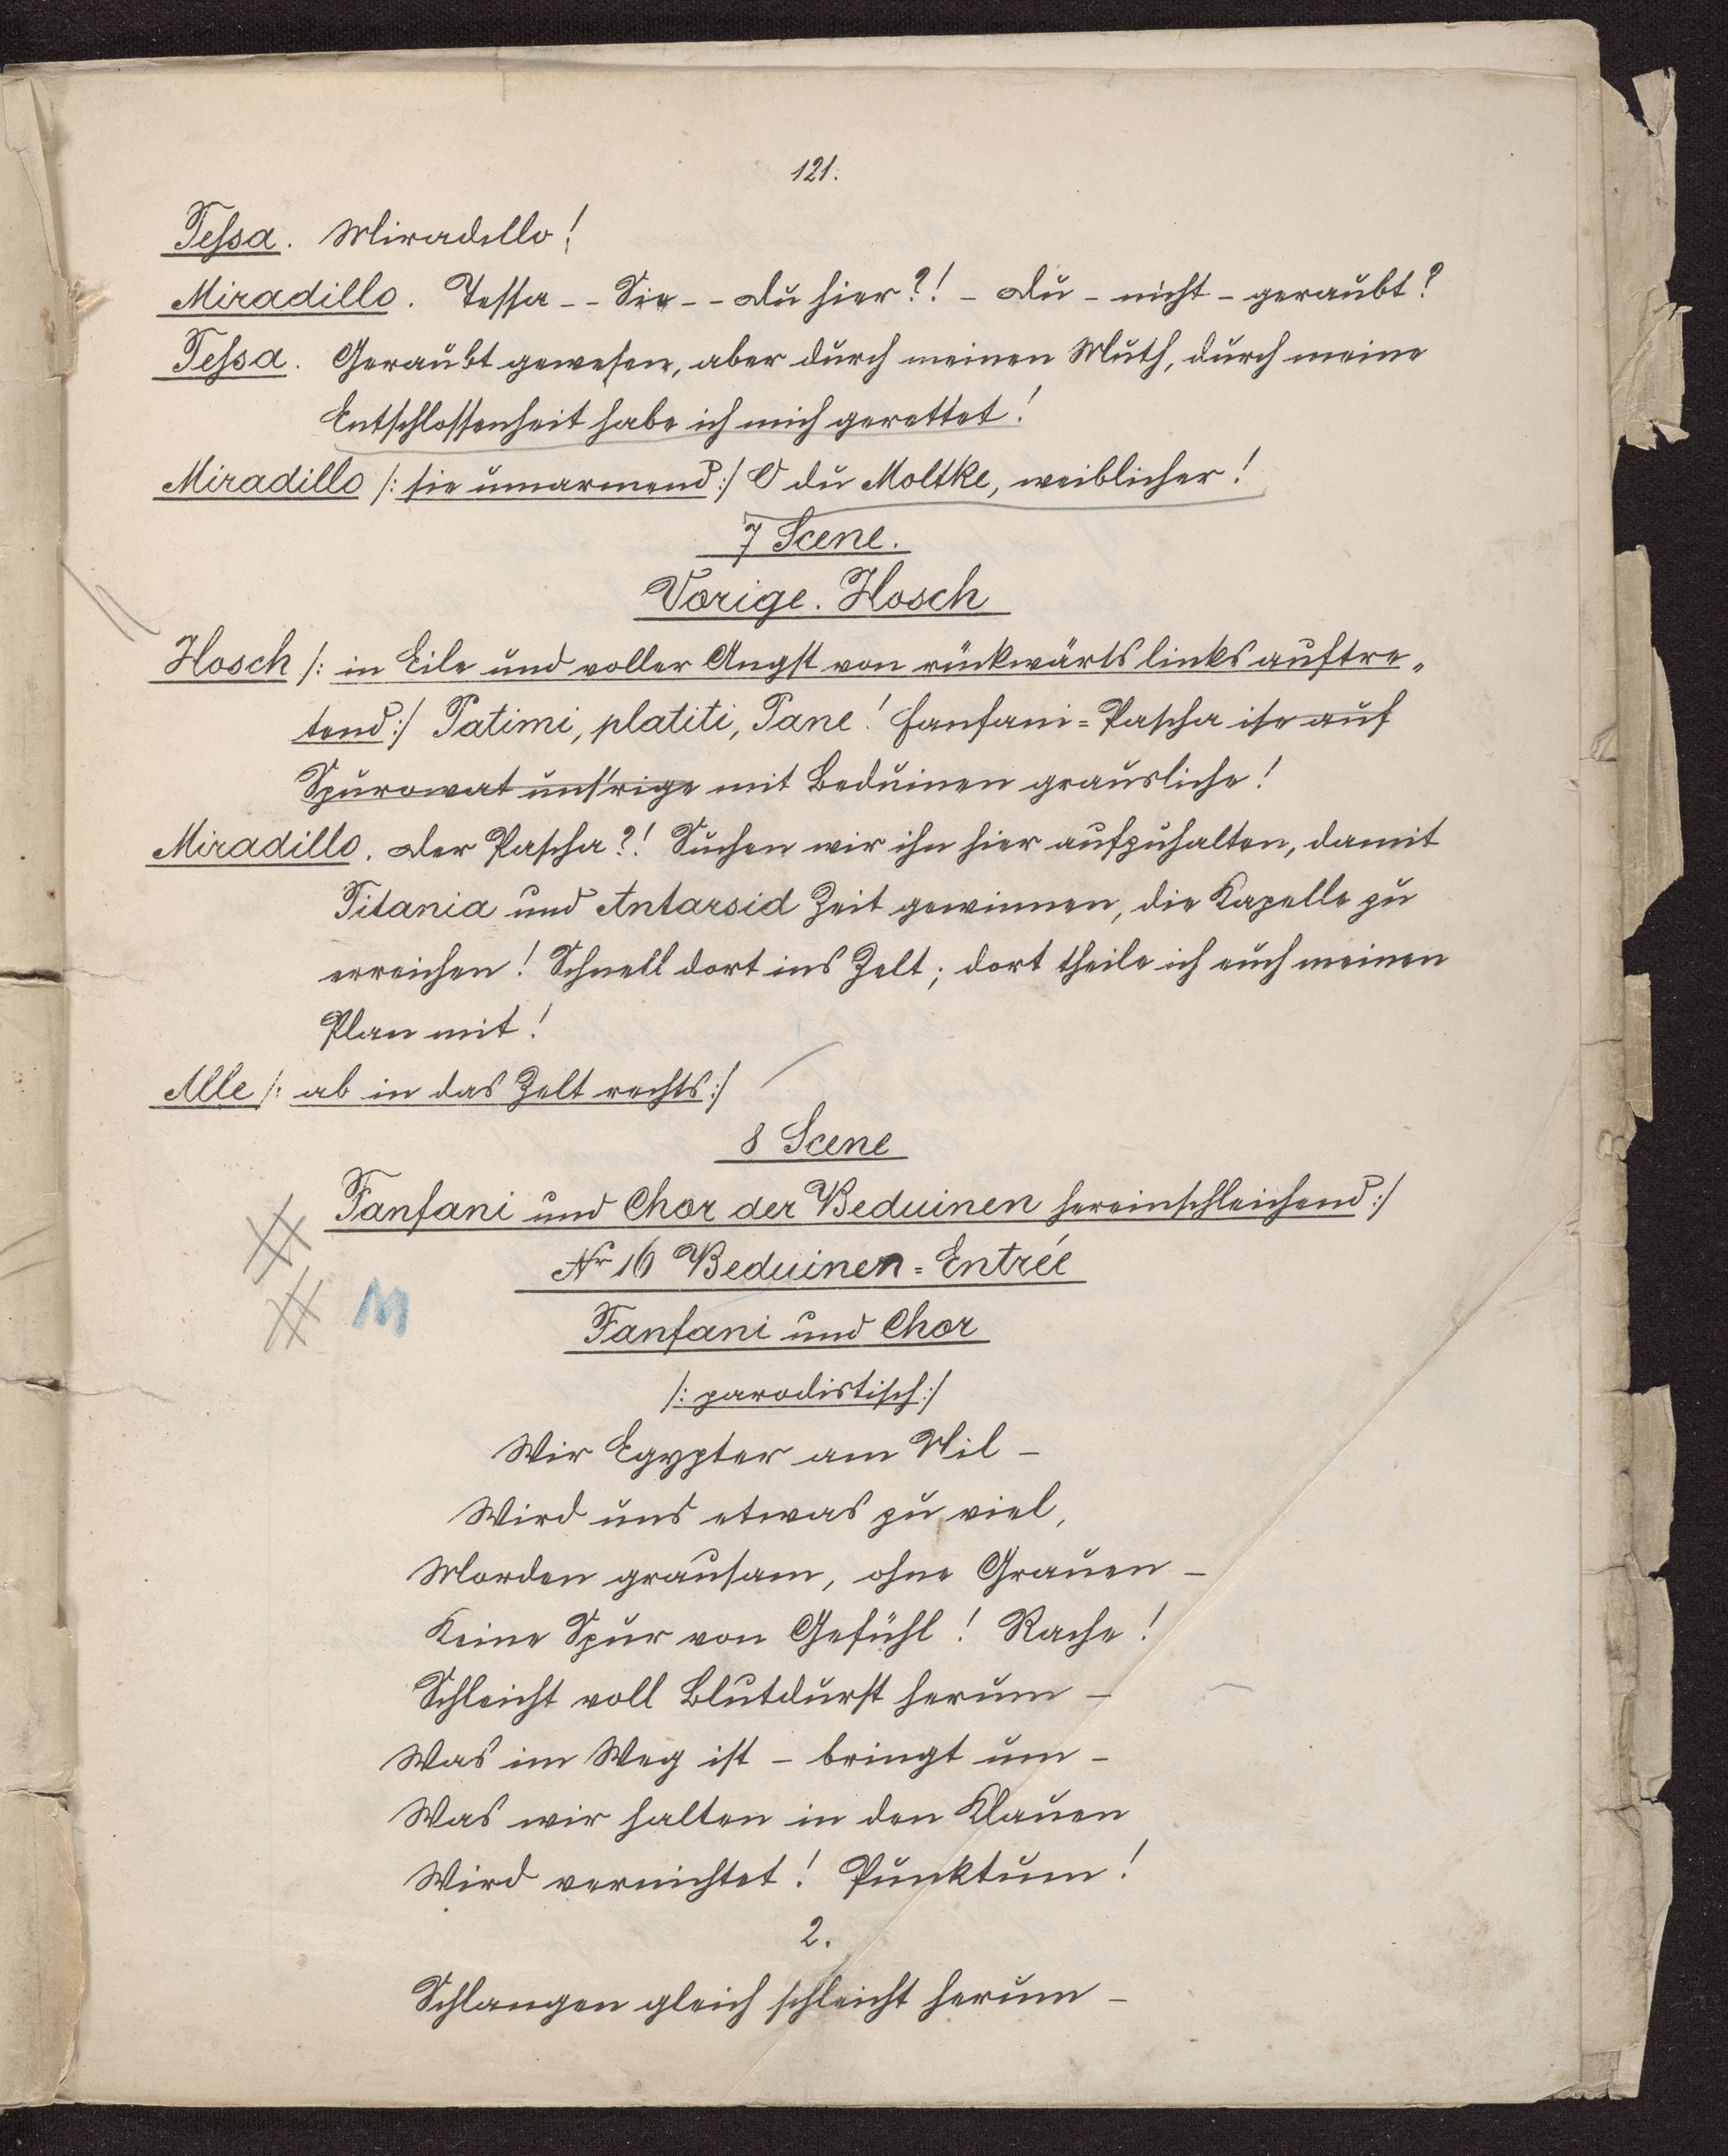 121.
Tessa. Miradillo!
Miradillo. Tessa -- Sie -- du hier?! - du - nicht - geraubt?
Tessa. Geraubt gewesen, aber durch meinen Muth, durch meine
Entschlossenheit habe ich mich gerettet!
Miradillo /: sie umarmend :/ O du Moltke, weiblicher!
7 Scene.
Vorige. Hosch
Hosch /: in Eile und voller Angst von rückwärts links auftre-
tend :/ Patimi, platiti, Pane! Fanfani-Pascha ise auf
Spurowat uns'rige mit Beduinen grausliche!
Miradillo. Der Pascha?! Suchen wir ihn hier aufzuhalten, damit
Titania und Antarsid Zeit gewinnen, die Kapelle zu
erreichen! Schnell dort ins Zelt; dort theile ich euch meinen
Plan mit!
Alle /: ab in das Zelt rechts :/
8 Scene
Fanfani und Chor der Beduinen hereinschleichend :/
Nr 16 Beduinen-Entrée
M
Fanfani und Chor
/: parodistisch :/
Wir Egypter am Nil -
Wird uns etwas zu viel,
Morden grausam, ohne Grauen -
Keine Spur von Gefühl! Rache!
Schleicht voll Blutdurst herum -
Was im Weg ist - bringt um -
Was wir halten in den Klauen
Wird vernichtet! Punktum!
2.
Schlangen gleich schleicht herum -